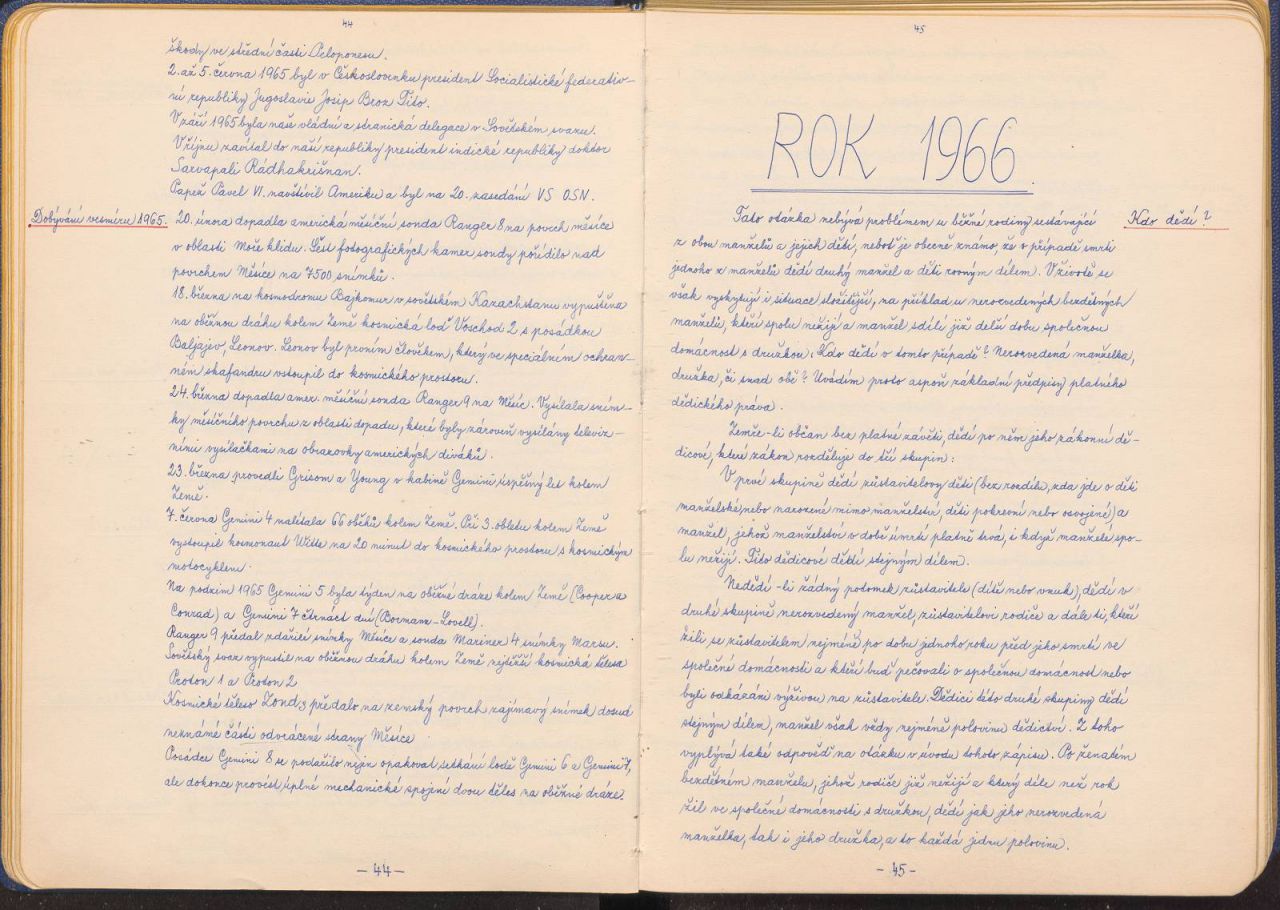 44
škody ve střední části Peloponesu.
2. až 5. června 1965 byl v Československu president Socialistické federativ-
ní republiky Jugoslavie Josip Broz Tito.
V září 1965 byla naše vládní a stranická delegace v Sovětském svazu.
V říjnu zavítal do naší republiky president indické republiky doktor
Sarvapali Rádhakrišnan.
Papež Pavel VI. navštívil Ameriku a byl na 20. zasedání VS OSN.
Dobývání vesmíru 1965.
20. února dopadla americká měsíční sonda Ranger 8 na povrch měsíce
v oblasti Moře klidu. Šest fotografických kamer sondy pořídilo nad
povrchem Měsíce na 7500 snímků.
18. března na kosmodromu Bajkonur v sovětském Kazachstanu vypuštěna
na oběžnou dráhu kolem Země kosmická loď Voschod 2 s posádkou
Baljájev, Leonov. Leonov byl prvním člověkem, který ve speciálním ochran-
ném skafandru vstoupil do kosmického prostoru.
24. března dopadla amer. měsíční sonda Ranger 9 na Měsíc. Vysílala sním-
ky měsíčního povrchu z oblasti dopadu, které byly zároveň vysílány televiz-
ními vysílačkami na obrazovky amerických diváků.
23. března provedli Grisom a Young v kabině Gemini úspěšný let kolem
Země.
7. června Gemini 4 nalétala 66 oběhů kolem Země. Při 3. obletu kolem Země
vystoupil kosmonaut Witte na 20 minut do kosmického prostoru s kosmickým
motocyklem.
Na podzim 1965 Gemini 5 byla týden na oběžné dráze kolem Země (Cooper a
Conrad) a Gemini 7 čtrnáct dní (Bormann-Lovell).
Ranger 9 předal zdařilé snímky Měsíce a sonda Mariner 4 snímky Marsu.
Sovětský svaz vypustil na oběžnou dráhu kolem Země nejtěžší kosmická tělesa
Proton 1 a Proton 2
Kosmické těleso Zond 3 předalo na zemský povrch zajímavý snímek dosud
neznámé části odvrácené strany Měsíce
Posádce Gemini 8 se podařilo nejen opakovat setkání lodě Gemini 6 a Gemini 7,
ale dokonce provést úplné mechanické spojení dvou těles na oběžné dráze.
- 44 -
45
ROK 1966
Kdo dědí?
Tato otázka nebývá problémem u běžné rodiny sestávající
z obou manželů a jejich dětí, neboť je obecně známo, že v případě smrti
jednoho z manželů dědí druhý manžel a děti rovným dílem. V životě se
však vyskytují i situace složitější, na příklad u nerozvedených bezdětných
manželů, kteří spolu nežijí a manžel sdílí již delší dobu společnou
domácnost s družkou. Kdo dědí v tomto případě? Nerozvedená manželka,
družka, či snad obě? Uvádím proto aspoň základní předpisy platného
dědického práva.
Zemře-li občan bez platné závěti, dědí po něm jeho zákonní dě-
dicové, které zákon rozděluje do tří skupin:
V prvé skupině dědí zůstavitelovy děti (bez rozdílu, zda jde o děti
manželské, nebo narozené mimo manželství, děti pokrevní nebo osvojené) a
manžel, jehož manželství v době úmrtí platně trvá, i když manželé spo-
lu nežijí. Tito dědicové dědí stejným dílem.
Nedědí-li žádný potomek zůstavitele (dítě nebo vnuk), dědí v
druhé skupině nerozvedený manžel, zůstavitelovi rodiče a dále ti, kteří
žili se zůstavitelem nejméně po dobu jednoho roku před jeho smrtí ve
společné domácnosti a kteří buď pečovali o společnou domácnost nebo
byli odkázáni výživou na zůstavitele. Dědici této druhé skupiny dědí
stejným dílem, manžel však vždy nejméně polovinu dědictví. Z toho
vyplývá také odpověď na otázku v úvodu tohoto zápisu. Po ženatém
bezdětném manželu, jehož rodiče již nežijí a který déle než rok
žil ve společné domácnosti s družkou, dědí jak jeho nerozvedená
manželka, tak i jeho družka, a to každá jednu polovinu.
- 45 -